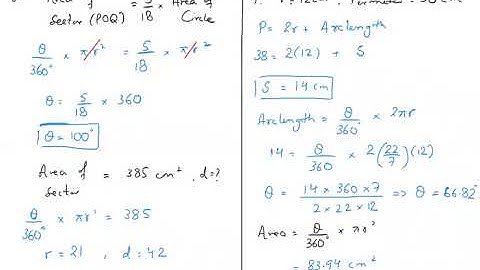 Area of = 5/18 × Area of
Sector (POQ) Circle
θ/360° × πr² = 5/18 × πr²
θ = 5/18 × 360
θ = 100°
Area of sector = 385 cm², d = ?
θ/360° × πr² = 385
r = 21 , d = 42
P = 2r + Arc length
38 = 2(12) + S
S = 14 cm
Arc length = θ/360 × 2πr
14 = θ/360 × 2(22/7)(12)
θ = 14 × 360 × 7 / 2 × 22 × 12 ⇒ θ = 66.82°
Area = θ/360° × πr²
= 83.94 cm²